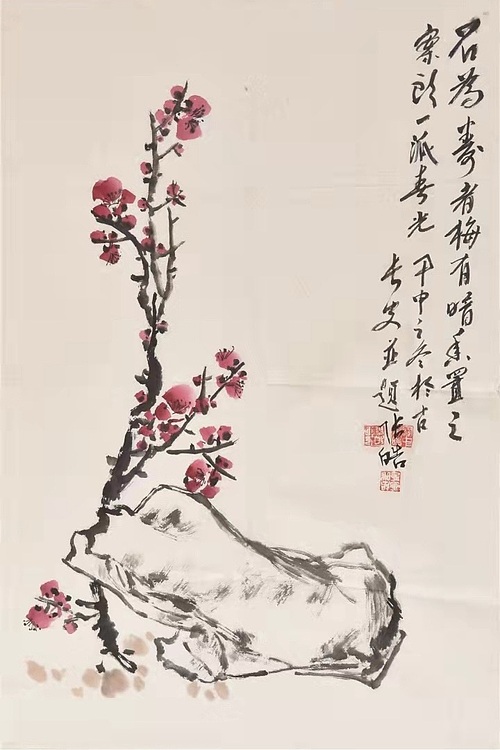 石为寿者梅有暗香置之
案头一派春光 甲申之冬於古
长安並题 张皓